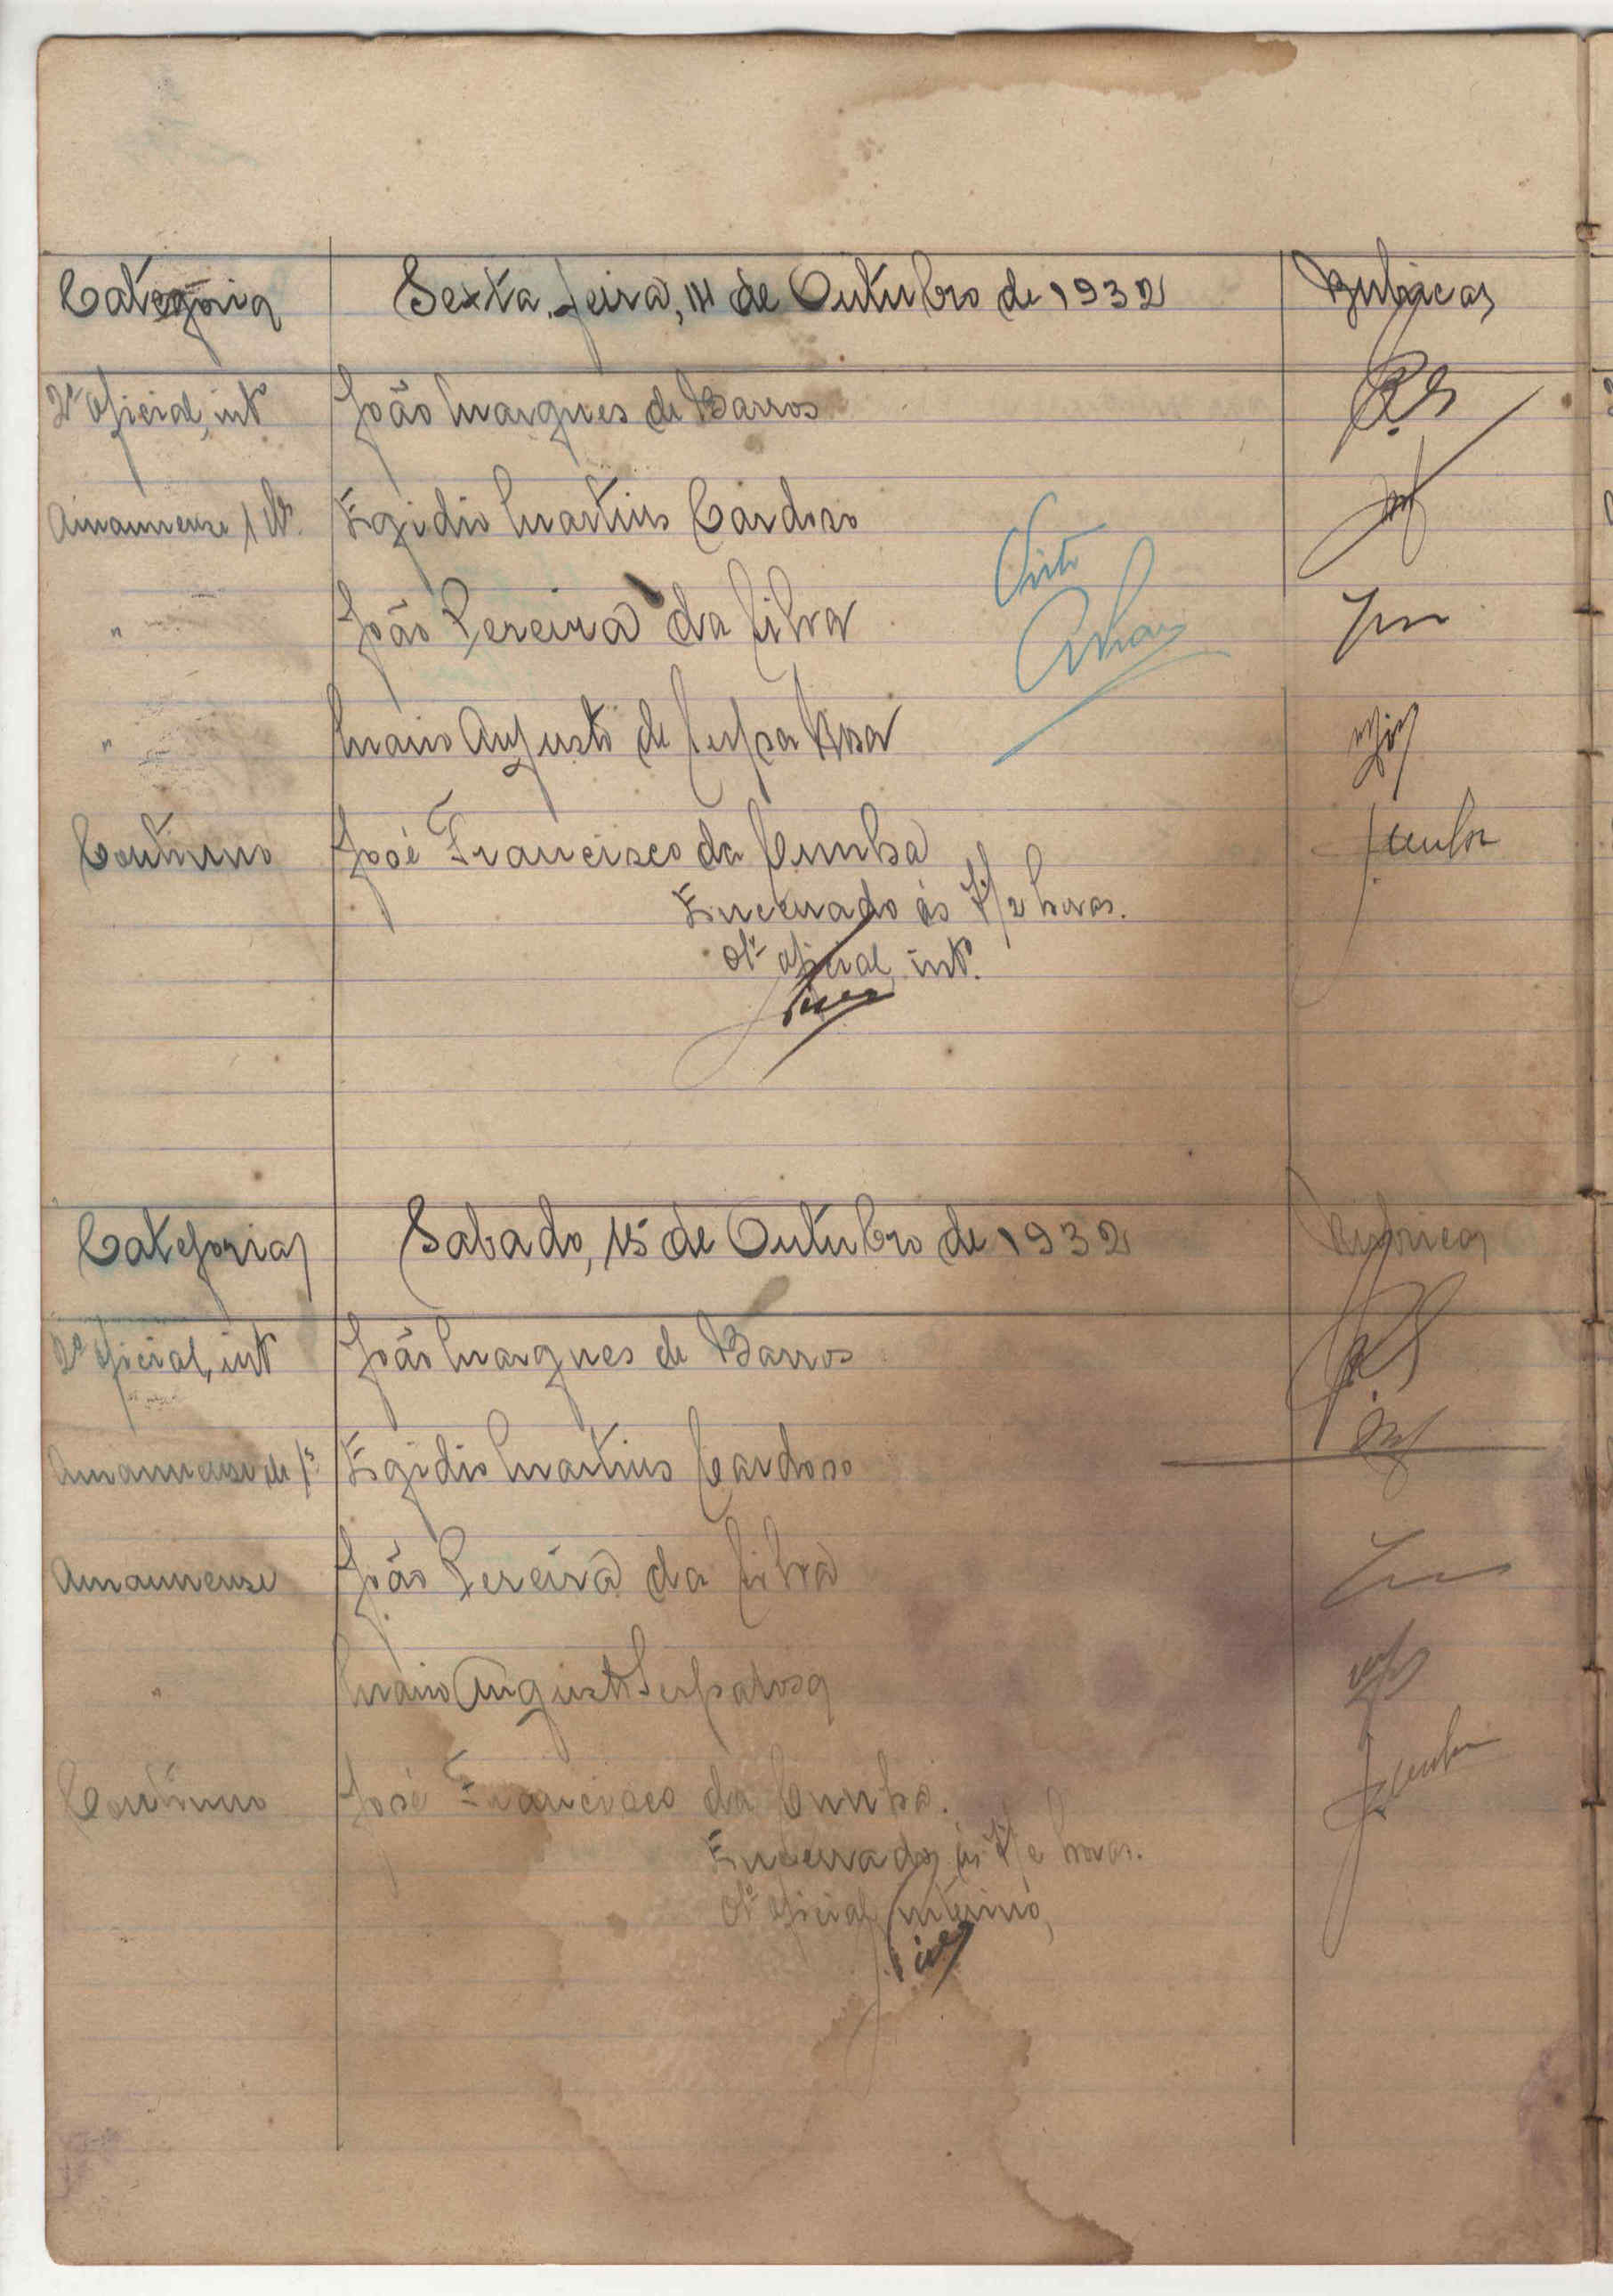 Categoria Sexta-feira, 14 de Outubro de 1932 Rubricas
2º oficial, intº João Marques de Barros
Amanuense Egidio Martins Cardoso
Visto
" João Pereira da Silva
" Mario Augusto de Serpa Rosa
Contínuo José Francisco da Cunha JCunha
Encerrado ás horas.
O 2º oficial, intº.
Categorias Sabado, 15 de Outubro de 1932 Rubricas
2º oficial, intº João Marques de Barros
Amanuense de 1ª Egidio Martins Cardoso
Amanuense João Pereira da Silva
" Mario Augusto Serpa Rosa
Contínuo José Francisco da Cunha. JCunha
Encerrado ás horas.
O 2º oficial, interino,